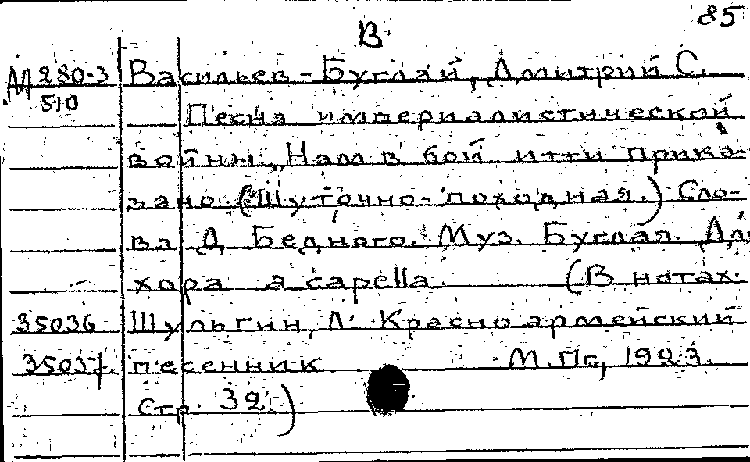 В 85
М 280-3 Васильев-Буглай, Дмитрий С.
510 Песня империалистической
войны „Нам в бой итти прика-
зано (Шуточно-походная.) Сло-
ва Д. Бедного. Муз. Буглая. Для
хора a capella. (В нотах:
35036 Шульгин, Л. Красноармейский
35037. песенник М. Пг., 1923.
Стр. 32.)